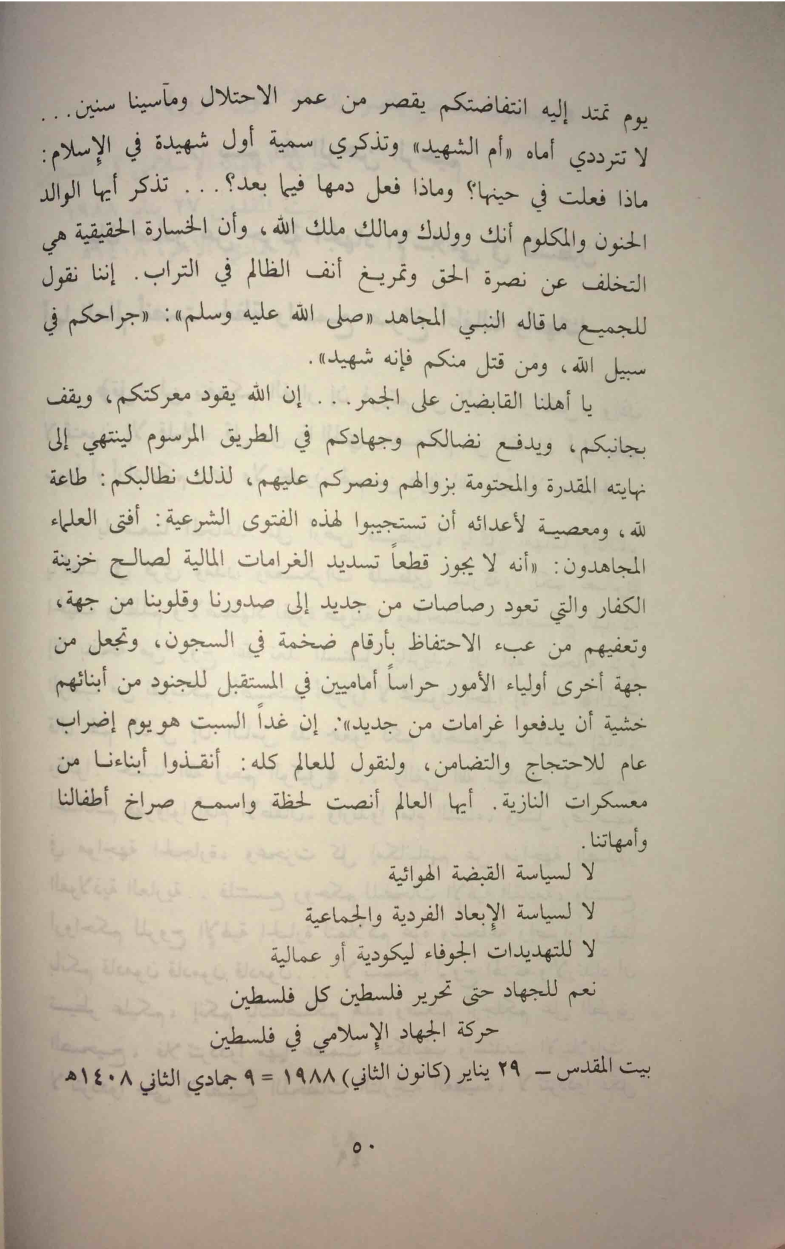 يوم تمتد إليه انتفاضتكم يقصر من عمر الاحتلال ومآسينا سنين...
لا تترددي أماه «أم الشهيد» وتذكري سمية أول شهيدة في الإسلام:
ماذا فعلت في حينها؟ وماذا فعل دمها فيما بعد؟... تذكر أيها الوالد
الحنون والمكلوم أنك وولدك ومالك ملك الله، وأن الخسارة الحقيقية هي
التخلف عن نصرة الحق وتمريغ أنف الظالم في التراب. إننا نقول
للجميع ما قاله النبي المجاهد «صلى الله عليه وسلم»: «جراحكم في
سبيل الله، ومن قتل منكم فإنه شهيد».
يا أهلنا القابضين على الجمر... إن الله يقود معركتكم، ويقف
بجانبكم، ويدفع نضالكم وجهادكم في الطريق المرسوم لينتهي إلى
نهايته المقدرة والمحتومة بزوالهم ونصركم عليهم، لذلك نطالبكم: طاعة
لله، ومعصية لأعدائه أن تستجيبوا لهذه الفتوى الشرعية: أفتى العلماء
المجاهدون: «أنه لا يجوز قطعاً تسديد الغرامات المالية لصالح خزينة
الكفار والتي تعود رصاصات من جديد إلى صدورنا وقلوبنا من جهة،
وتعفيهم من عبء الاحتفاظ بأرقام ضخمة في السجون، وتجعل من
جهة أخرى أولياء الأمور حراساً أماميين في المستقبل للجنود من أبنائهم
خشية أن يدفعوا غرامات من جديد». إن غداً السبت هو يوم إضراب
عام للاحتجاج والتضامن، ولنقول للعالم كله: أنقذوا أبناءنا من
معسكرات النازية. أيها العالم أنصت لحظة واسمع صراخ أطفالنا
وأمهاتنا.
لا لسياسة القبضة الهوائية
لا لسياسة الإبعاد الفردية والجماعية
لا للتهديدات الجوفاء ليكودية أو عمالية
نعم للجهاد حتى تحرير فلسطين كل فلسطين
حركة الجهاد الإسلامي في فلسطين
بيت المقدس – ٢٩ يناير (كانون الثاني) ١٩٨٨ = ٩ جمادي الثاني ١٤٠٨هـ
٥٠